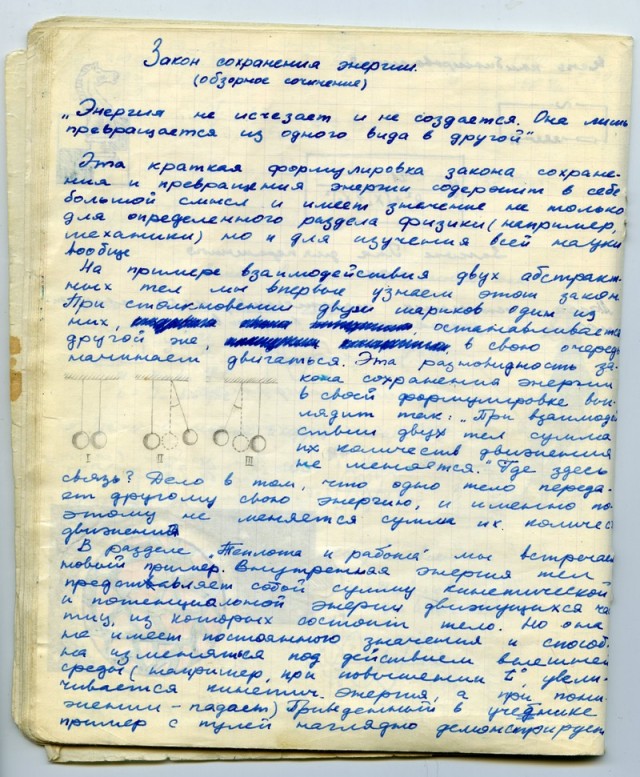 Закон сохранения энергии.
(обзорное сочинение)
„Энергия не исчезает и не создается. Она лишь
превращается из одного вида в другой"
Эта краткая формулировка закона сохране-
ния и превращения энергии содержит в себе
большой смысл и имеет значение не только
для определенного раздела физики (например,
механики) но и для изучения всей науки
вообще
На примере взаимодействия двух абстракт-
ных тел мы впервые узнаем этот закон
При столкновении двух шариков один из
них, останавливается
другой же, в свою очередь
начинает двигаться. Эта разновидность за-
кона сохранения энергии
в своей формулировке выг-
лядит так: „При взаимодей
ствии двух тел сумма
их количеств движения
не меняется." Где здесь
I II III
связь? Дело в том, что одно тело переда-
ет другому свою энергию, и именно по-
этому не меняется сумма их количес
движения
В разделе „Теплота и работа" мы встречаем
новый пример. Внутренняя энергия тел
представляет собой сумму кинетической
и потенциальной энергии движущихся час
тиц, из которых состоит тело. Но она
не имеет постоянного значения и способ-
на изменяться под действием внешней
среды (например, при повышении t° увели-
чивается кинетич. энергия, а при пони-
жении - падает) Приведенный в учебнике
пример с пулей наглядно демонстрирует